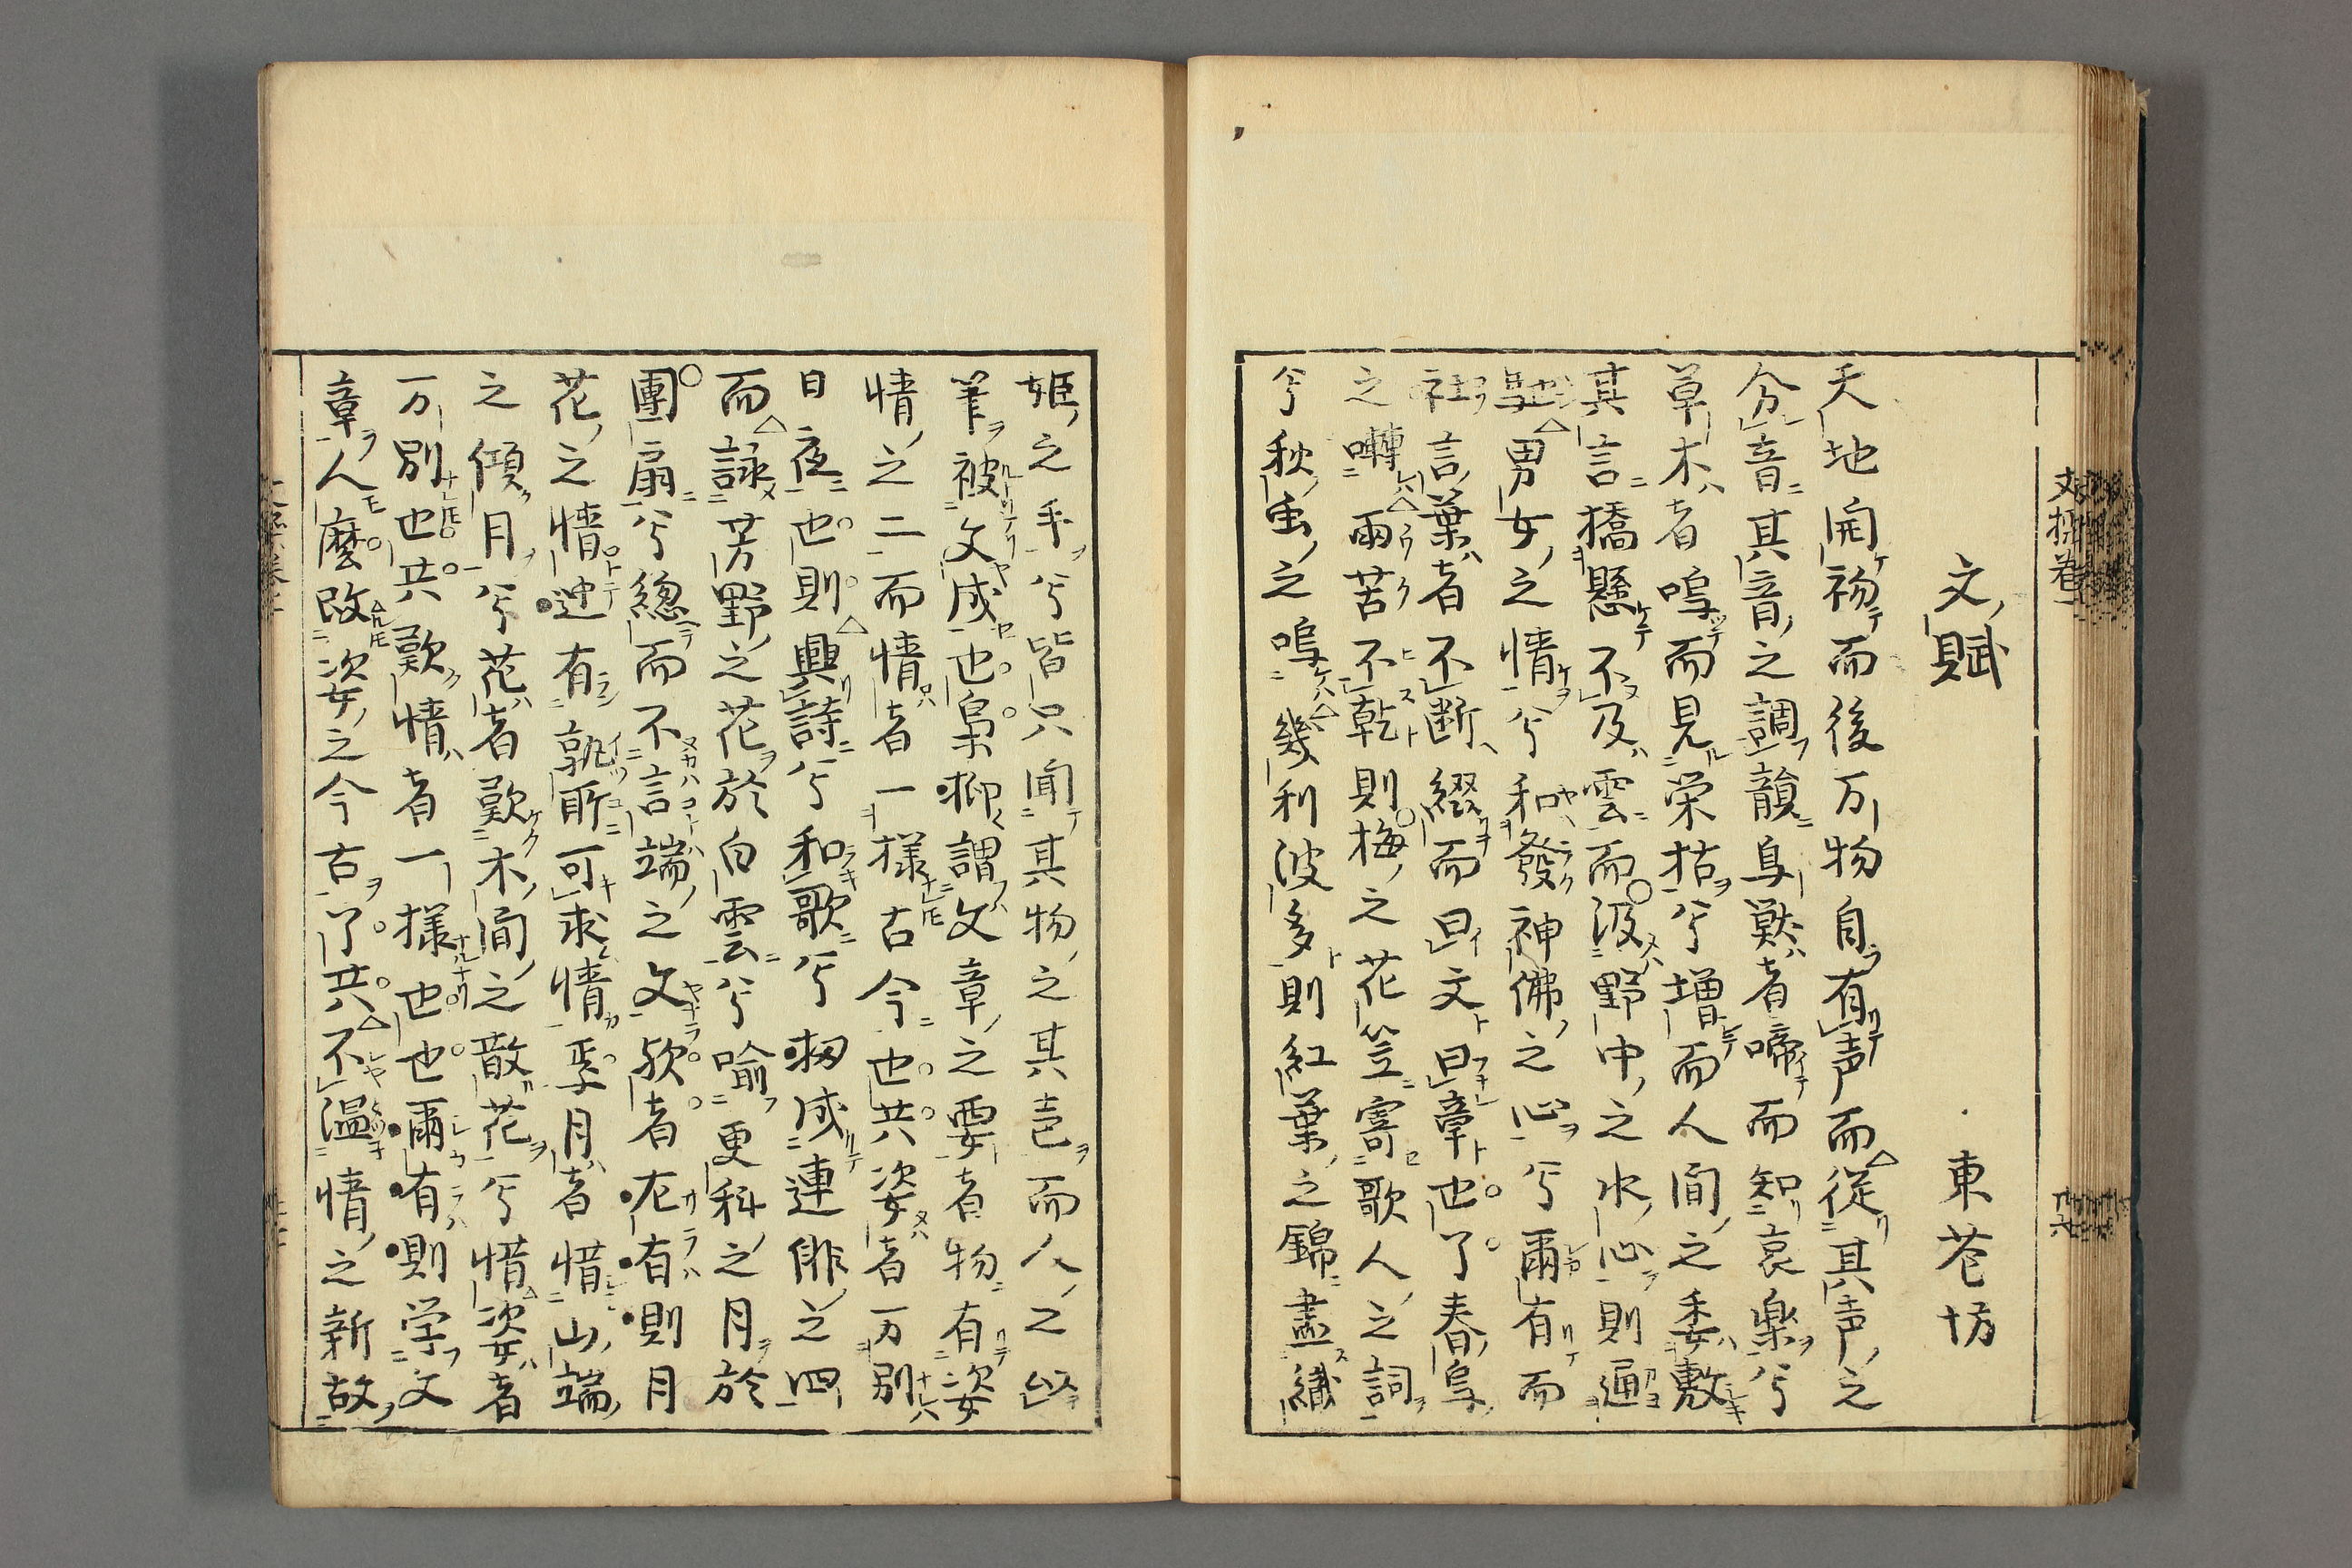 文賦
東花坊
天地開初而後万物自有声而従其声之
分音其音之調韻鳥獣者啼而知哀楽兮
草木者鳴而見栄枯兮増而人間之委敷
其言橋懸不及雲而汲野中之水心則通
馳男女之情兮和發神佛之心兮爾有而
社言葉者不断綴而曰文曰章也了春鳥
之囀雨苦不乾則梅之花笠寄歌人之詞
兮秋虫之鳴幾利波多則紅葉之錦盡織
姫之手兮皆只聞其物之其色而人之
筆被文成也梟抑謂文章之要者物有姿
情之二而情者一様古今也共姿者万別
日夜也則興詩兮和歌兮扨成連俳之四
而詠芳野之花於白雲兮喩更科之月於
團扇兮總而不言端之文歟者左有則月
花之情迚有孰所可求情乎月者惜山端
之傾月兮花者歎木間之散花兮惜姿者
万別也共歎情者一様也也爾有則学文
章人麼改姿之今古了共不温情之新故